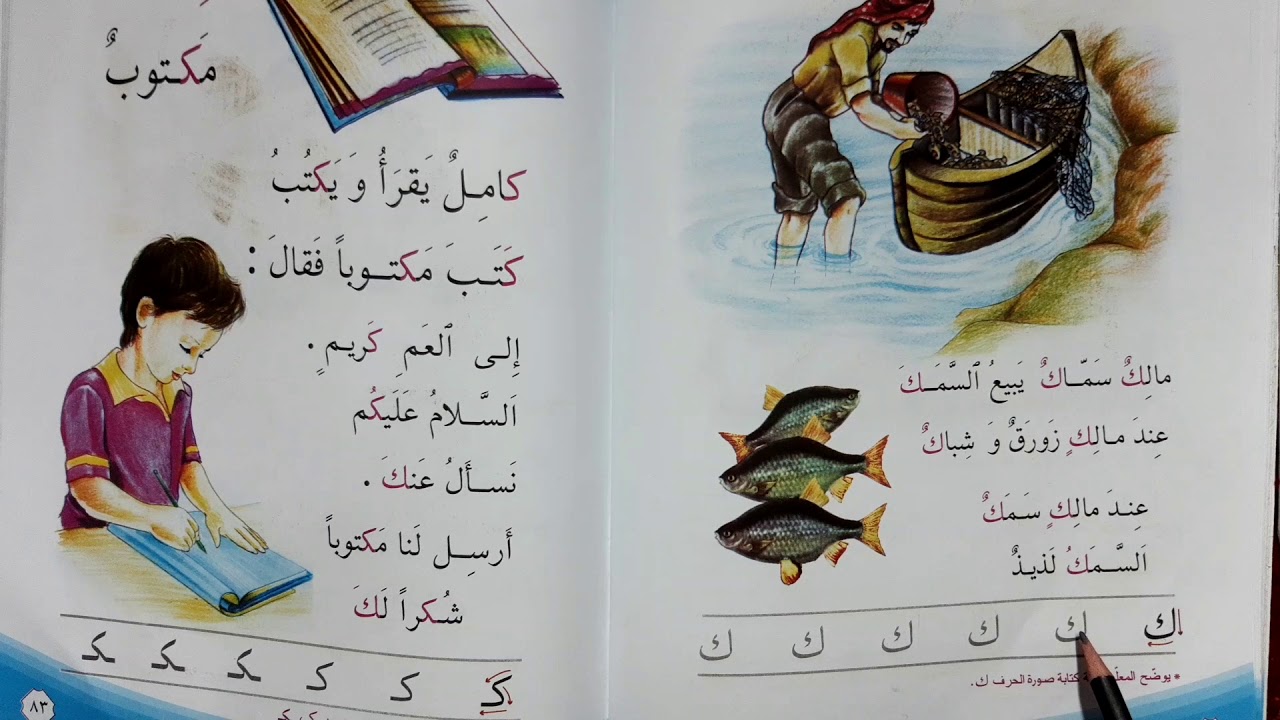 مالِكٌ سَمّـاكٌ يَبيعُ ٱلسَّمَـكَ
عِندَ مـالِكٍ زَورَقٌ وَ شِباكٌ
عِنـدَ مالِكٍ سَمَكٌ
اَلسَّـمَكُ لَذيذٌ
ك ك ك ك ك ك
* يوضّح المعلّم كتابة صورة الحرف ك.
مَكـتوبٌ
كامِـلٌ يَقرَأُ وَ يَكتُبُ
كَتَـبَ مَكتـوباً فَقالَ :
إِلـى ٱلعَمِ كَريـمٍ .
اَلسَّـلامُ عَلَيكُم
نَسـأَلُ عَنكَ .
أَرسِـل لَنا مَكتوباً
شُـكراً لَكَ
كـ كـ كـ ـكـ ـكـ ـكـ
٨٣